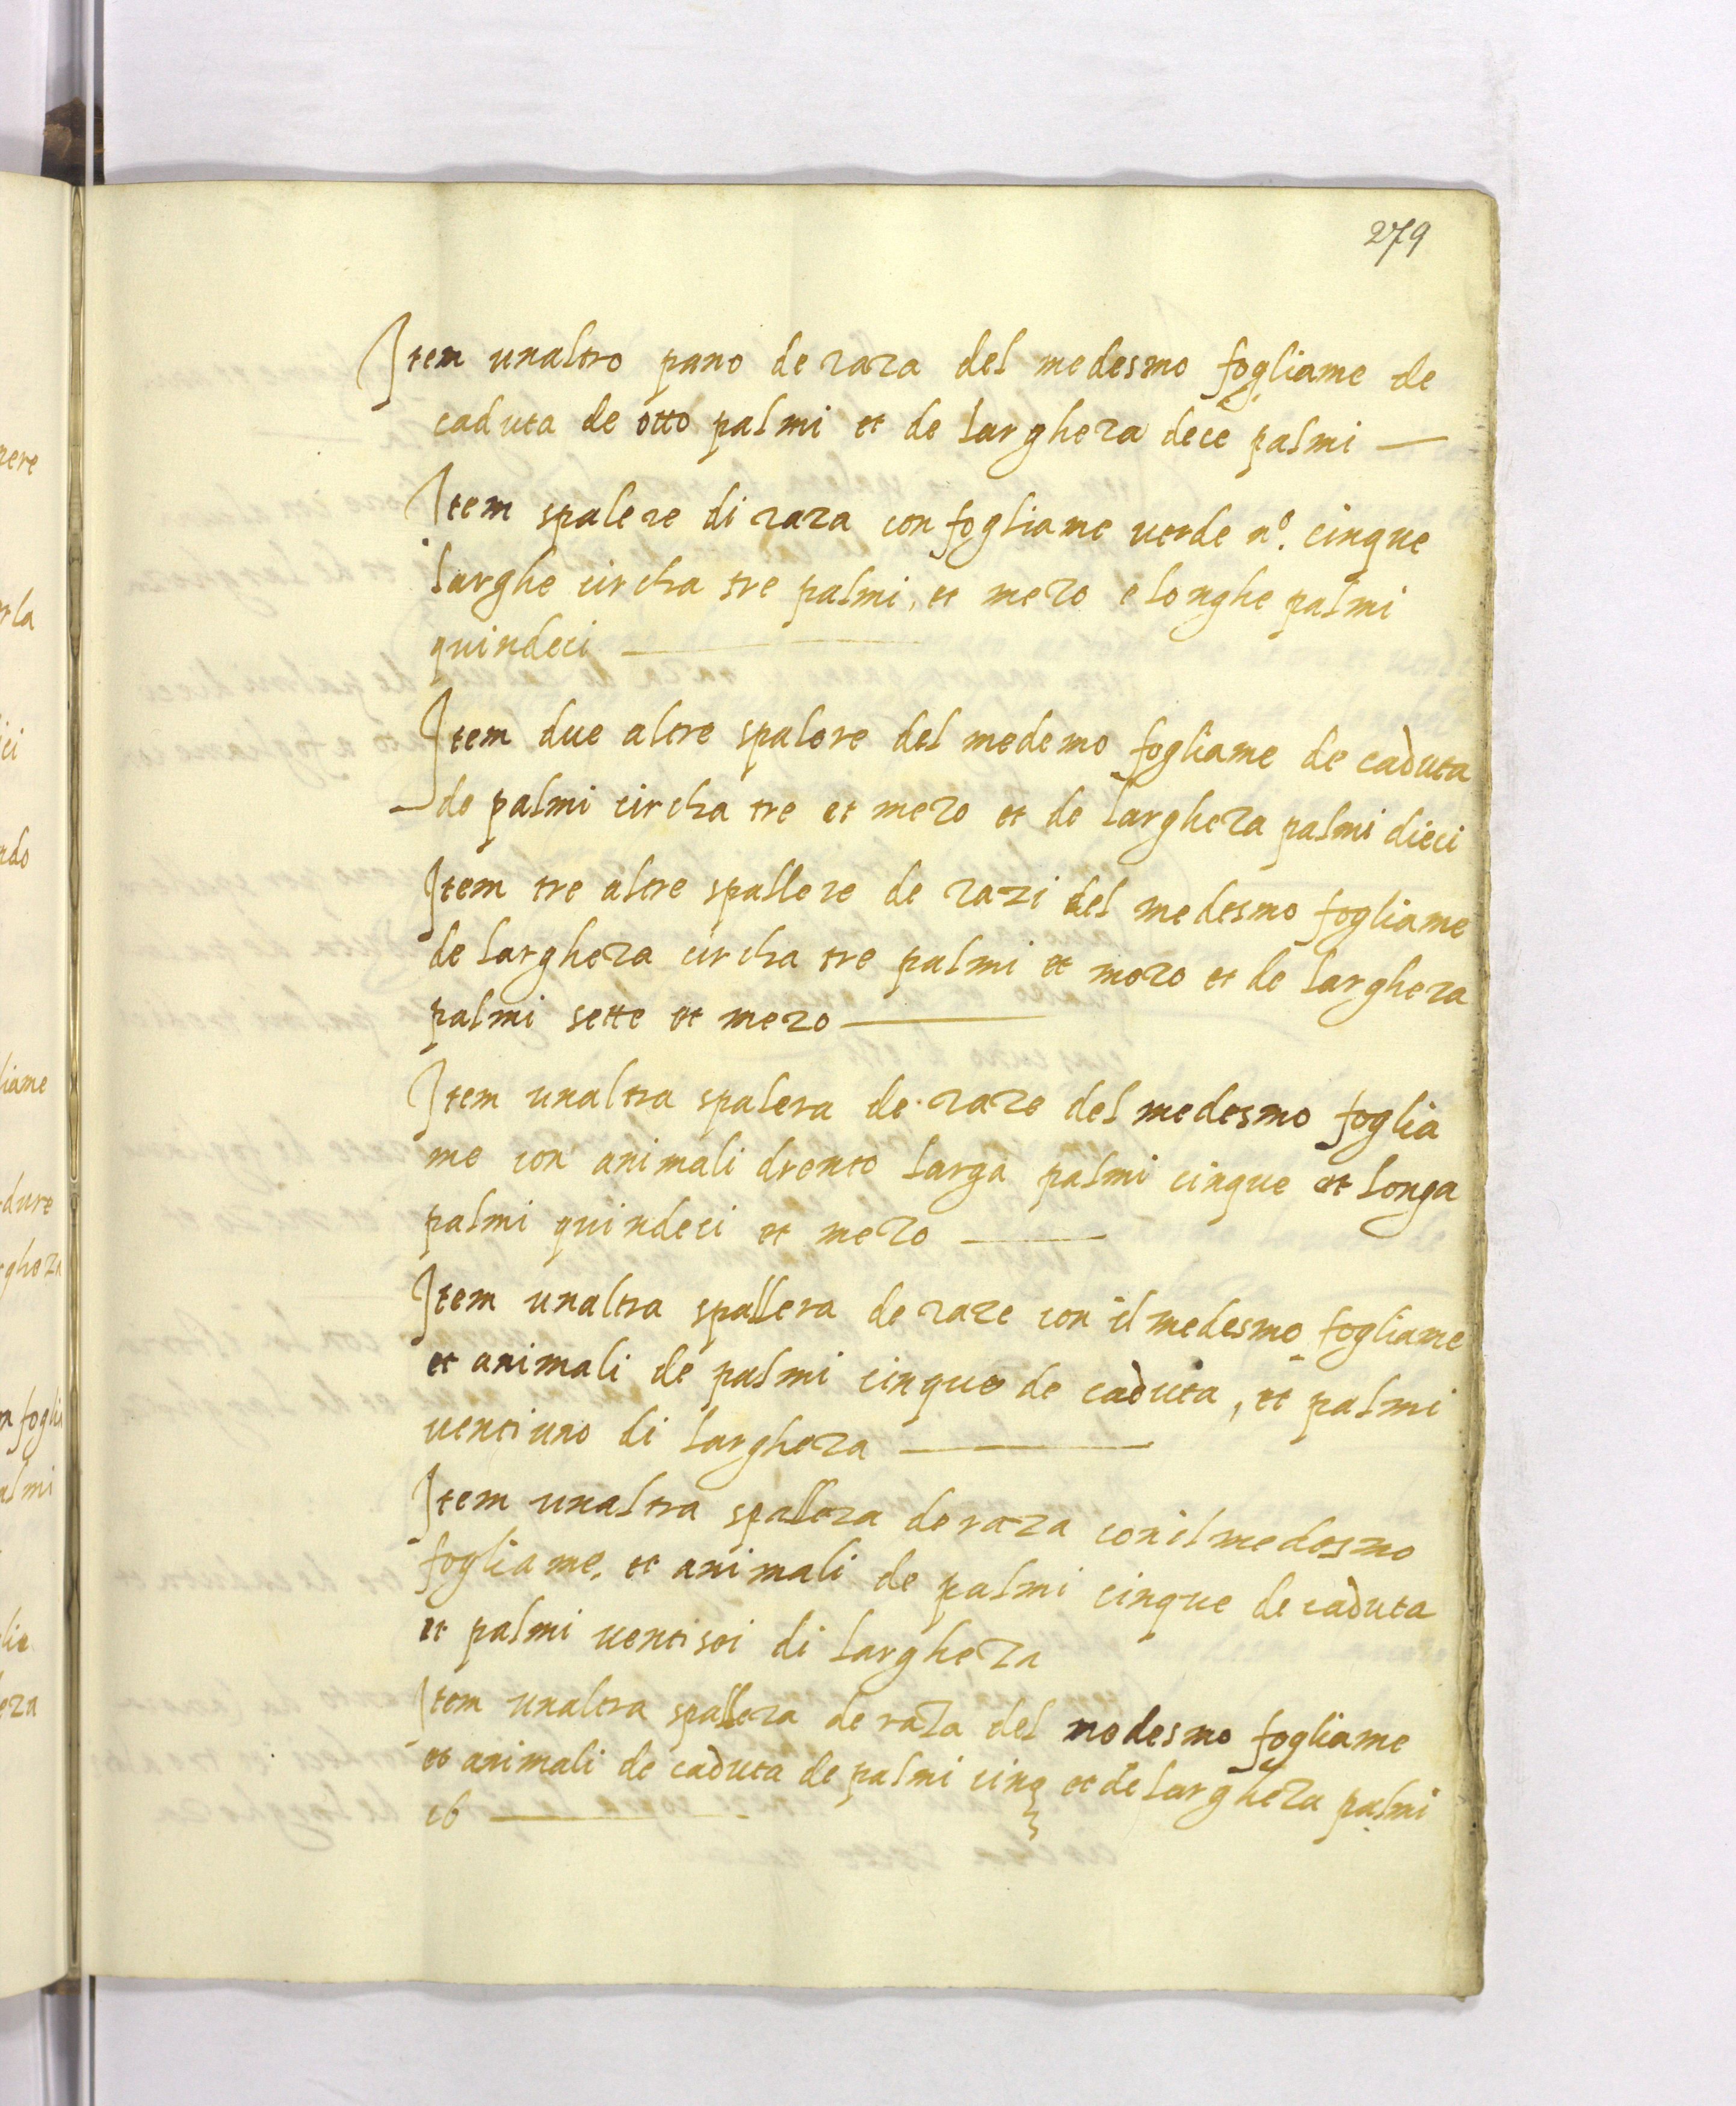 279
Item unaltro pano de raza del medesmo fogliame de
caduta de otto palmi et de largheza dece palmi —
Item spalere di raza con fogliame verde n.º cinque
larghe circha tre palmi, et mezo e longhe palmi
quindeci —
Item due altre spalere del medemo fogliame de caduta
de palmi circha tre et mezo et de largheza palmi dieci
Item tre altre spallere de razi del medesmo fogliame
de largheza circha tre palmi et mezo et de largheza
palmi sette et mezo —
Item unaltra spalera de raze del medesmo foglia
me con animali drento larga palmi cinque et longa
palmi quindeci et mezo —
Item unaltra spallera de raze con il medesmo fogliame
et animali de palmi cinque de caduta, et palmi
ventiuno di largheza —
Item unaltra spallera de raza con il medesmo
fogliame, et animali de palmi cinque de caduta
et palmi ventisei di largheza
Item unaltra spallera de raza del medesmo fogliame
et animali de caduta de palmi cinq et de largheza palmi
16 —